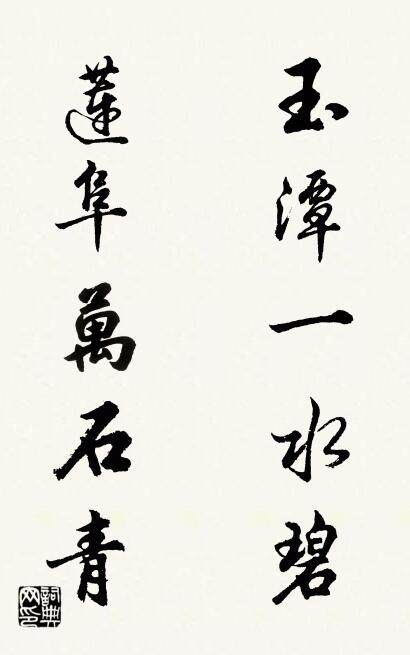 玉潭一水碧
蓮阜萬石青
詞典网印